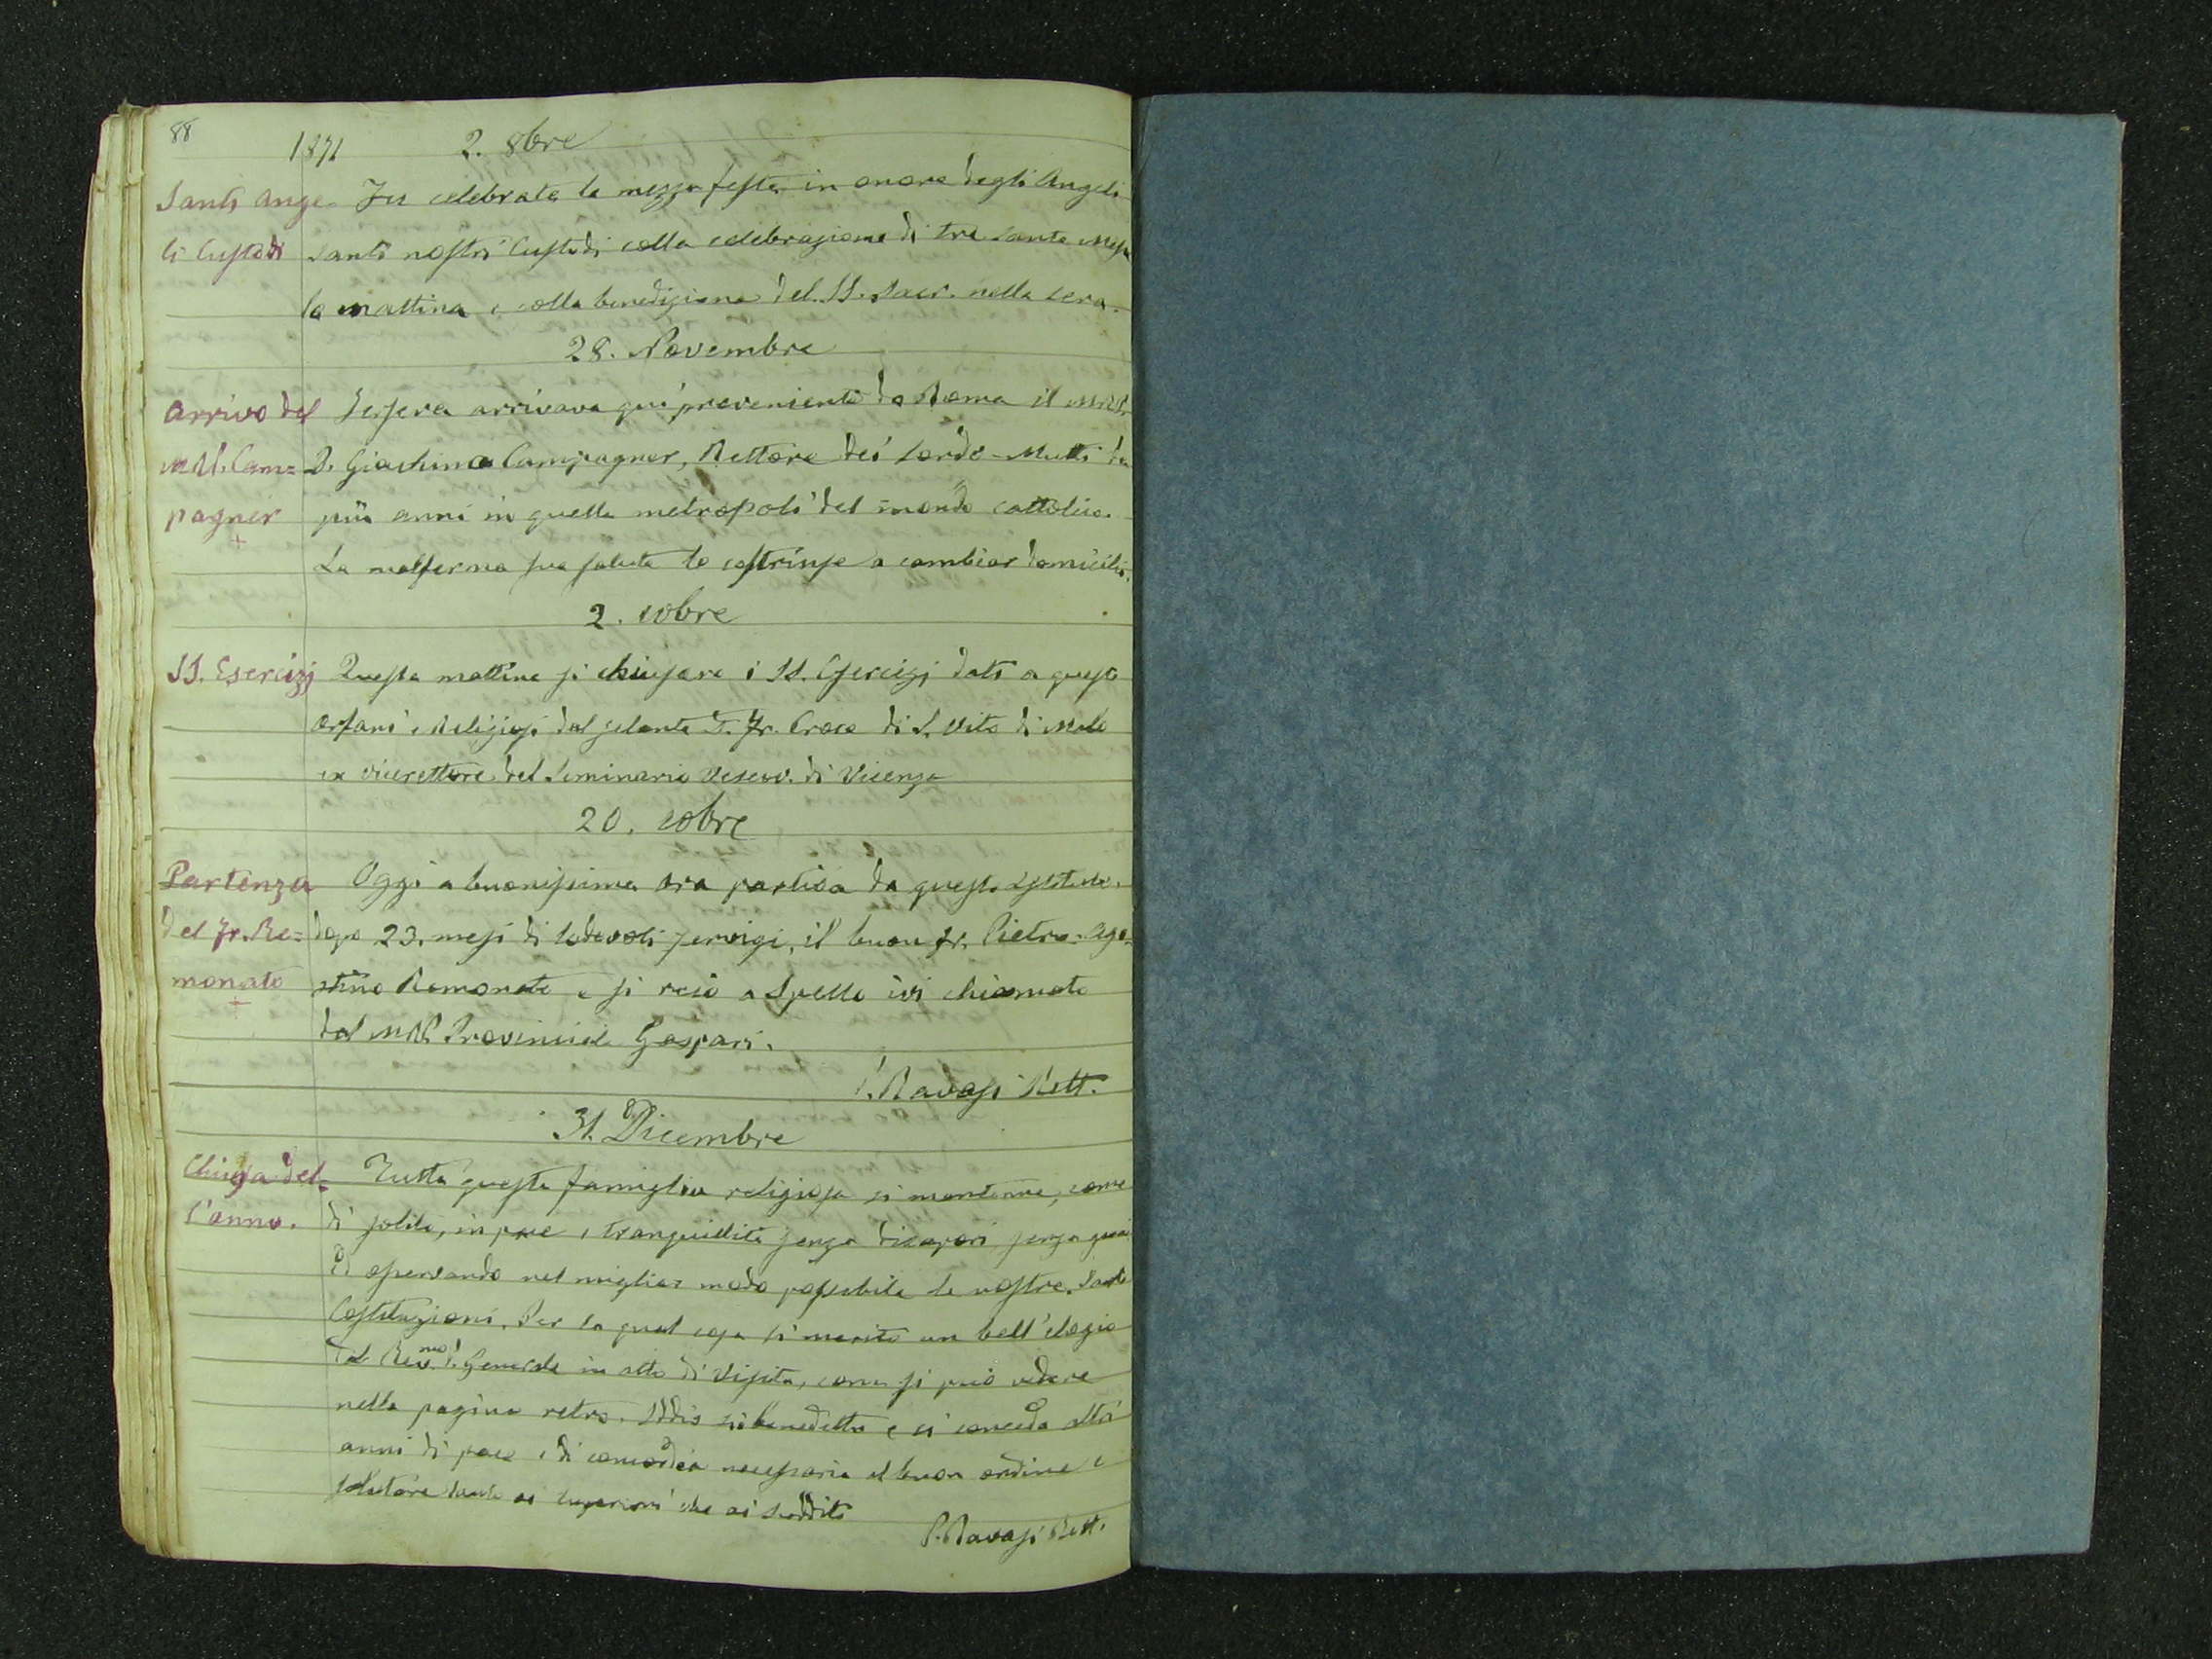 88
1871 2. 8bre
Santi Ange- Fu celebrata la mezza festa in onore degli Angeli
li Custodi santi nostri Custodi colla celebrazione di tre sante Messe
la mattina e colla benedizione del SS. Sacr. nella sera.
28. Novembre
Arrivo del Jersera arrivava quì proveniente da Roma il M.R.P.
M.R.P. Cam= D. Giachino Campagner, Rettore dei Sordo-Muti da
pagner più anni in quella metropoli del mondo cattolico.
+
La malferma sua salute lo costrinse a cambiar domicilio.
2. Xbre
SS. Esercizj Questa mattina si chiusero i SS. Esercizj dati a questi
orfani e Religiosi dal zelante D. Fr. Croce di S. Vito di Malo
ex vicerettore del Seminario Vescov. di Vicenza
20. Xbre
Partenza Oggi a buonissima ora partiva da questo Istituto,
del Fr. Re= dopo 23. mesi di lodevoli servigi, il buon fr. Pietro-Ago=
monato stino Remonato e si recò a Spello ivi chiamato
+
dal M.R.P. Provinciale Gaspari.
P. Ravasi Rett.
31. Dicembre
Chiusa del= Tutta questa famiglia religiosa si mantenne, come
l'anno. di solito, in pace e tranquillità senza dissapori, senza guai
ed osservando nel miglior modo possibile le nostre Sante
Costituzioni. Per la qual cosa si meritò un bell'elogio
dal Rev.mo P. Generale in atto di Visita, come si può vedere
nella pagina retro. Iddio sia benedetto e ci conceda altri
anni di pace e di concordia necessaria al buon ordine e
salutare tanto ai Superiori che ai Sudditi
P. Ravasi Rett.